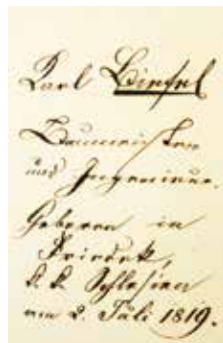 Karl Biefel
Baumeister
und Ingenieur.
Geboren in
Friedek,
k. k. Schlesien
am 2. Juli 1819.